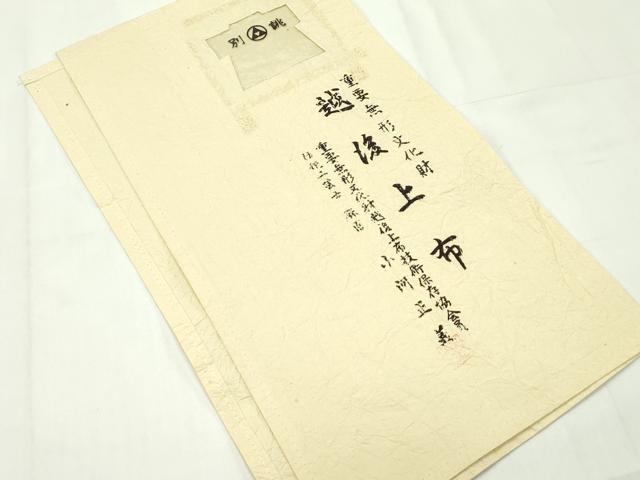 別誂
重要無形文化財
越後上布
重要無形文化財越後上布技術保存協会員
小河正義